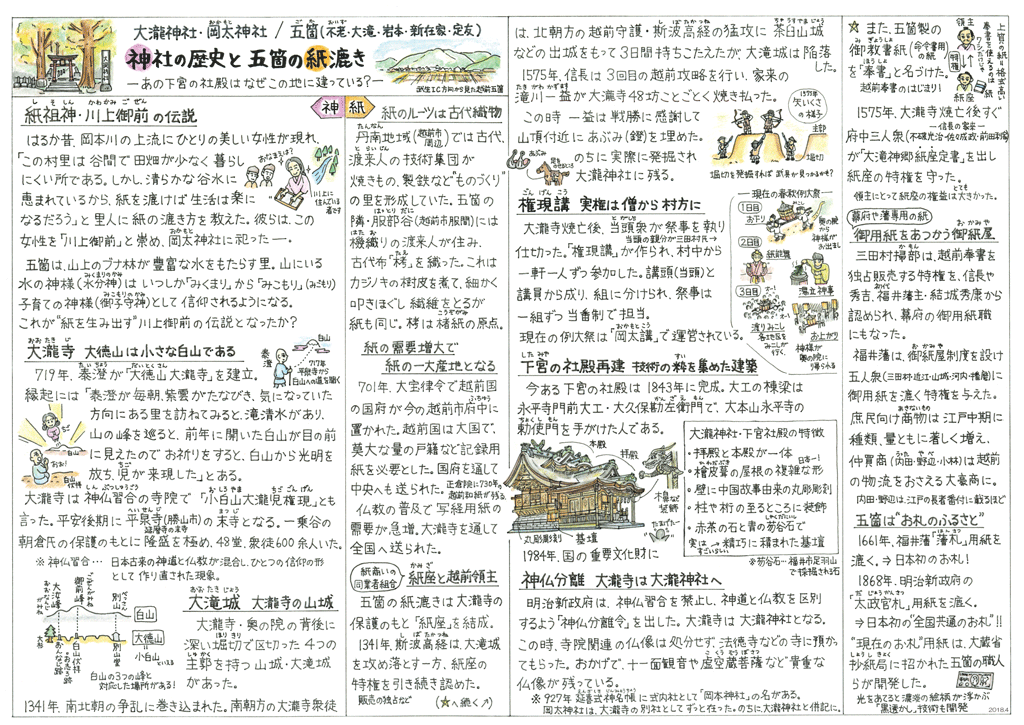 大瀧神社・岡太神社 / 五箇(不老・大滝・岩本・新在家・定友)
神社の歴史と五箇の紙漉き
―あの下宮の社殿はなぜこの地に建っている?―
武生IC方向から見た越前五箇
神 紙
紙祖神・川上御前の伝説
はるか昔、岡本川の上流にひとりの美しい女性が現れ
「この村里は谷間で田畑が少なく暮らし
にくい所である。しかし、清らかな谷水に
恵まれているから、紙を漉けば生活は楽に
なるだろう」と里人に紙の漉き方を教えた。彼らは、この
女性を「川上御前」と崇め、岡太神社に祀った―。
おなまえは?
川上に住んでいる者です
五箇は、山上のブナ林が豊富な水をもたらす里。山にいる
水の神様(水分神)はいつしか「みくまり」から「みこもり」(みごもり)
子育ての神様(御子守神)として信仰されるようになる。
これが“紙を生み出す”川上御前の伝説となったか?
大瀧寺 大徳山は小さな白山である
719年、泰澄が「大徳山大瀧寺」を建立。
縁起には「泰澄が毎朝、紫雲がたなびき、気になっていた
方向にある里を訪ねてみると、滝清水があり、
山の峰を巡ると、前年に開いた白山が目の前
に見えたのでお祈りをすると、白山から光明を
放ち、児が来現した」とある。
泰澄
白山
717年 平泉寺から白山への道を開く
おお!
大瀧寺は神仏習合の寺院で「小白山大瀧児権現」とも
言った。平安後期に平泉寺(勝山市)の末寺となる。一乗谷の
延暦寺の末寺
朝倉氏の保護のもとに隆盛を極め、48堂、衆徒600余人いた。
※神仏習合… 日本古来の神道と仏教が混合し、ひとつの信仰の形
として作り直された現象。
大汝峰
御前峰
別山
白山
大徳山
小白山といえる
別山堂
白山の3つの峰と
対応した場所がある!
大滝城 大瀧寺の山城
大瀧寺・奥の院の背後に
深い堀切で区切った4つの
主郭を持つ山城・大滝城
があった。
1341年、南北朝の争乱に巻き込まれた。南朝方の大瀧寺衆徒
紙のルーツは古代織物
丹南地域(越前市周辺)では古代、
渡来人の技術集団が
焼きもの、製鉄など“ものづくり”
の里を形成していた。五箇の
隣・服部谷(越前市服間)には
機織りの渡来人が住み、
古代布「栲」を織った。これは
カジノキの樹皮を煮て、細かく
叩きほぐし繊維をとるが
紙も同じ。栲は楮紙の原点。
紙の需要増大で
紙の一大産地となる
701年、大宝律令で越前国
の国府が今の越前市府中に
置かれた。越前国は大国で、
莫大な量の戸籍など記録用
紙を必要とした。国府を通して
中央へも送られた。正倉院に730年の越前和紙が残る
仏教の普及で写経用紙の
需要か急増。大瀧寺を通して
全国へ送られた。
紙商いの同業者組合
紙座と越前領主
五箇の紙漉きは大瀧寺の
保護のもと「紙座」を結成。
1341年、斯波高経は、大滝城
を攻め落とす一方、紙座の
特権を引き続き認めた。
販売の独占など
(☆へ続く↗)
は、北朝方の越前守護・斯波高経の猛攻に茶臼山城
などの出城をもって3日間持ちこたえたが大滝城は陥落
した。
1575年、信長は3回目の越前攻略を行い、家来の
滝川一益が大瀧寺48坊ことごとく焼き払った。
この時一益は戦勝に感謝して
山頂付近にあぶみ(鐙)を埋めた。
のちに実際に発掘され
大瀧神社に残る。
矢いくさの様子
主郭
堀切
堀切を発掘すれば武具が見つかるかも?
権現講 実権は僧から村方に
大瀧寺焼亡後、当頭衆が祭事を執り
当頭の銭分が三田村氏→
仕切った。「権現講」が作られ、村中から
一軒一人ずつ参加した。講頭(当頭)と
講員から成り、組に分けられ、祭事は
一組ずつ当番制で担当。
現在の例大祭は「岡太講」で運営されている。
―現在の春秋例大祭―
1日目
お下り
2日目
紙能舞
湯立神事
3日目
渡りみこし
各地区をみこしが行く
お上がり
下宮の社殿再建 技術の粋を集めた建築
今ある下宮の社殿は1843年に完成。大工の棟梁は
永平寺門前大工・大久保勘左衛門で、大本山永平寺の
勅使門を手がけた人である。
本殿
拝殿
丸彫彫刻
基壇
大瀧神社・下宮社殿の特徴
・拝殿と本殿が一体
日本一!
・檜皮葺の屋根の複雑な形
・壁に中国故事由来の丸彫彫刻
・柱や桁の至るところに装飾
・赤茶の石と青の笏谷石で
実は→積巧に積まれた基壇
すごいらしい
※笏谷石…福井市足羽山で採掘される石
1984年、国の重要文化財に
神仏分離 大瀧寺は大瀧神社へ
明治新政府は、神仏習合を禁止し、神道と仏教を区別
するよう「神仏分離令」を出した。大瀧寺は大瀧神社となる。
この時、寺院関連の仏像は処分せず、法徳寺などの寺に預か
てもらった。おかげで、十一面観音や虚空蔵菩薩など貴重な
仏像が残っている。
※927年 延喜式神名帳に式内社として「岡本神社」の名がある。
岡太神社は、大瀧寺の別社としてずっと在った。のちに、大瀧神社と併記に。
☆また、五箇製の
御教書紙(命令書用の紙)
を「奉書」と名づけた。
越前奉書のはじまり!
領主
紙座
上宮の紙は格式高い
1575年、大瀧寺焼亡後すぐ
―信長の家来―
府中三人衆(不破光治・佐々成政・前田利家)
が「大瀧神郷紙座定書」を出し
紙座の特権を守った。
領主にとって紙座の権益は大きかった。
幕府や藩専用の紙
御用紙をあつかう御紙屋
三田村掃部は、越前奉書を
独占販売する特権を、信長や
秀吉、福井藩主・結城秀康から
認められ、幕府の御用紙職
にもなった。
福井藩は、御紙屋制度を設け
五人衆(三田村・近江・山城・河内・播磨)に
御用紙を漉く特権を与えた。
庶民向け商物は江戸中期に
種類、量ともに著しく増え、
仲買商(内田・野辺・小林)は越前
の物流をおさえた大豪商に。
内田・野辺は、江戸の長者番付に載るほど
五箇は“お札のふるさと”
1661年、福井藩「藩札」用紙を
漉く。→日本初のお札!
1868年、明治新政府の
「太政官札」用紙を漉く。
⇒日本初の“全国共通のお札”!!
“現在のお札”用紙は、大蔵省
抄紙局に招かれた五箇の職人
らが開発した。
光をあてると濃淡の絵柄が浮かぶ
“黒透かし”技術も開発
2018.4